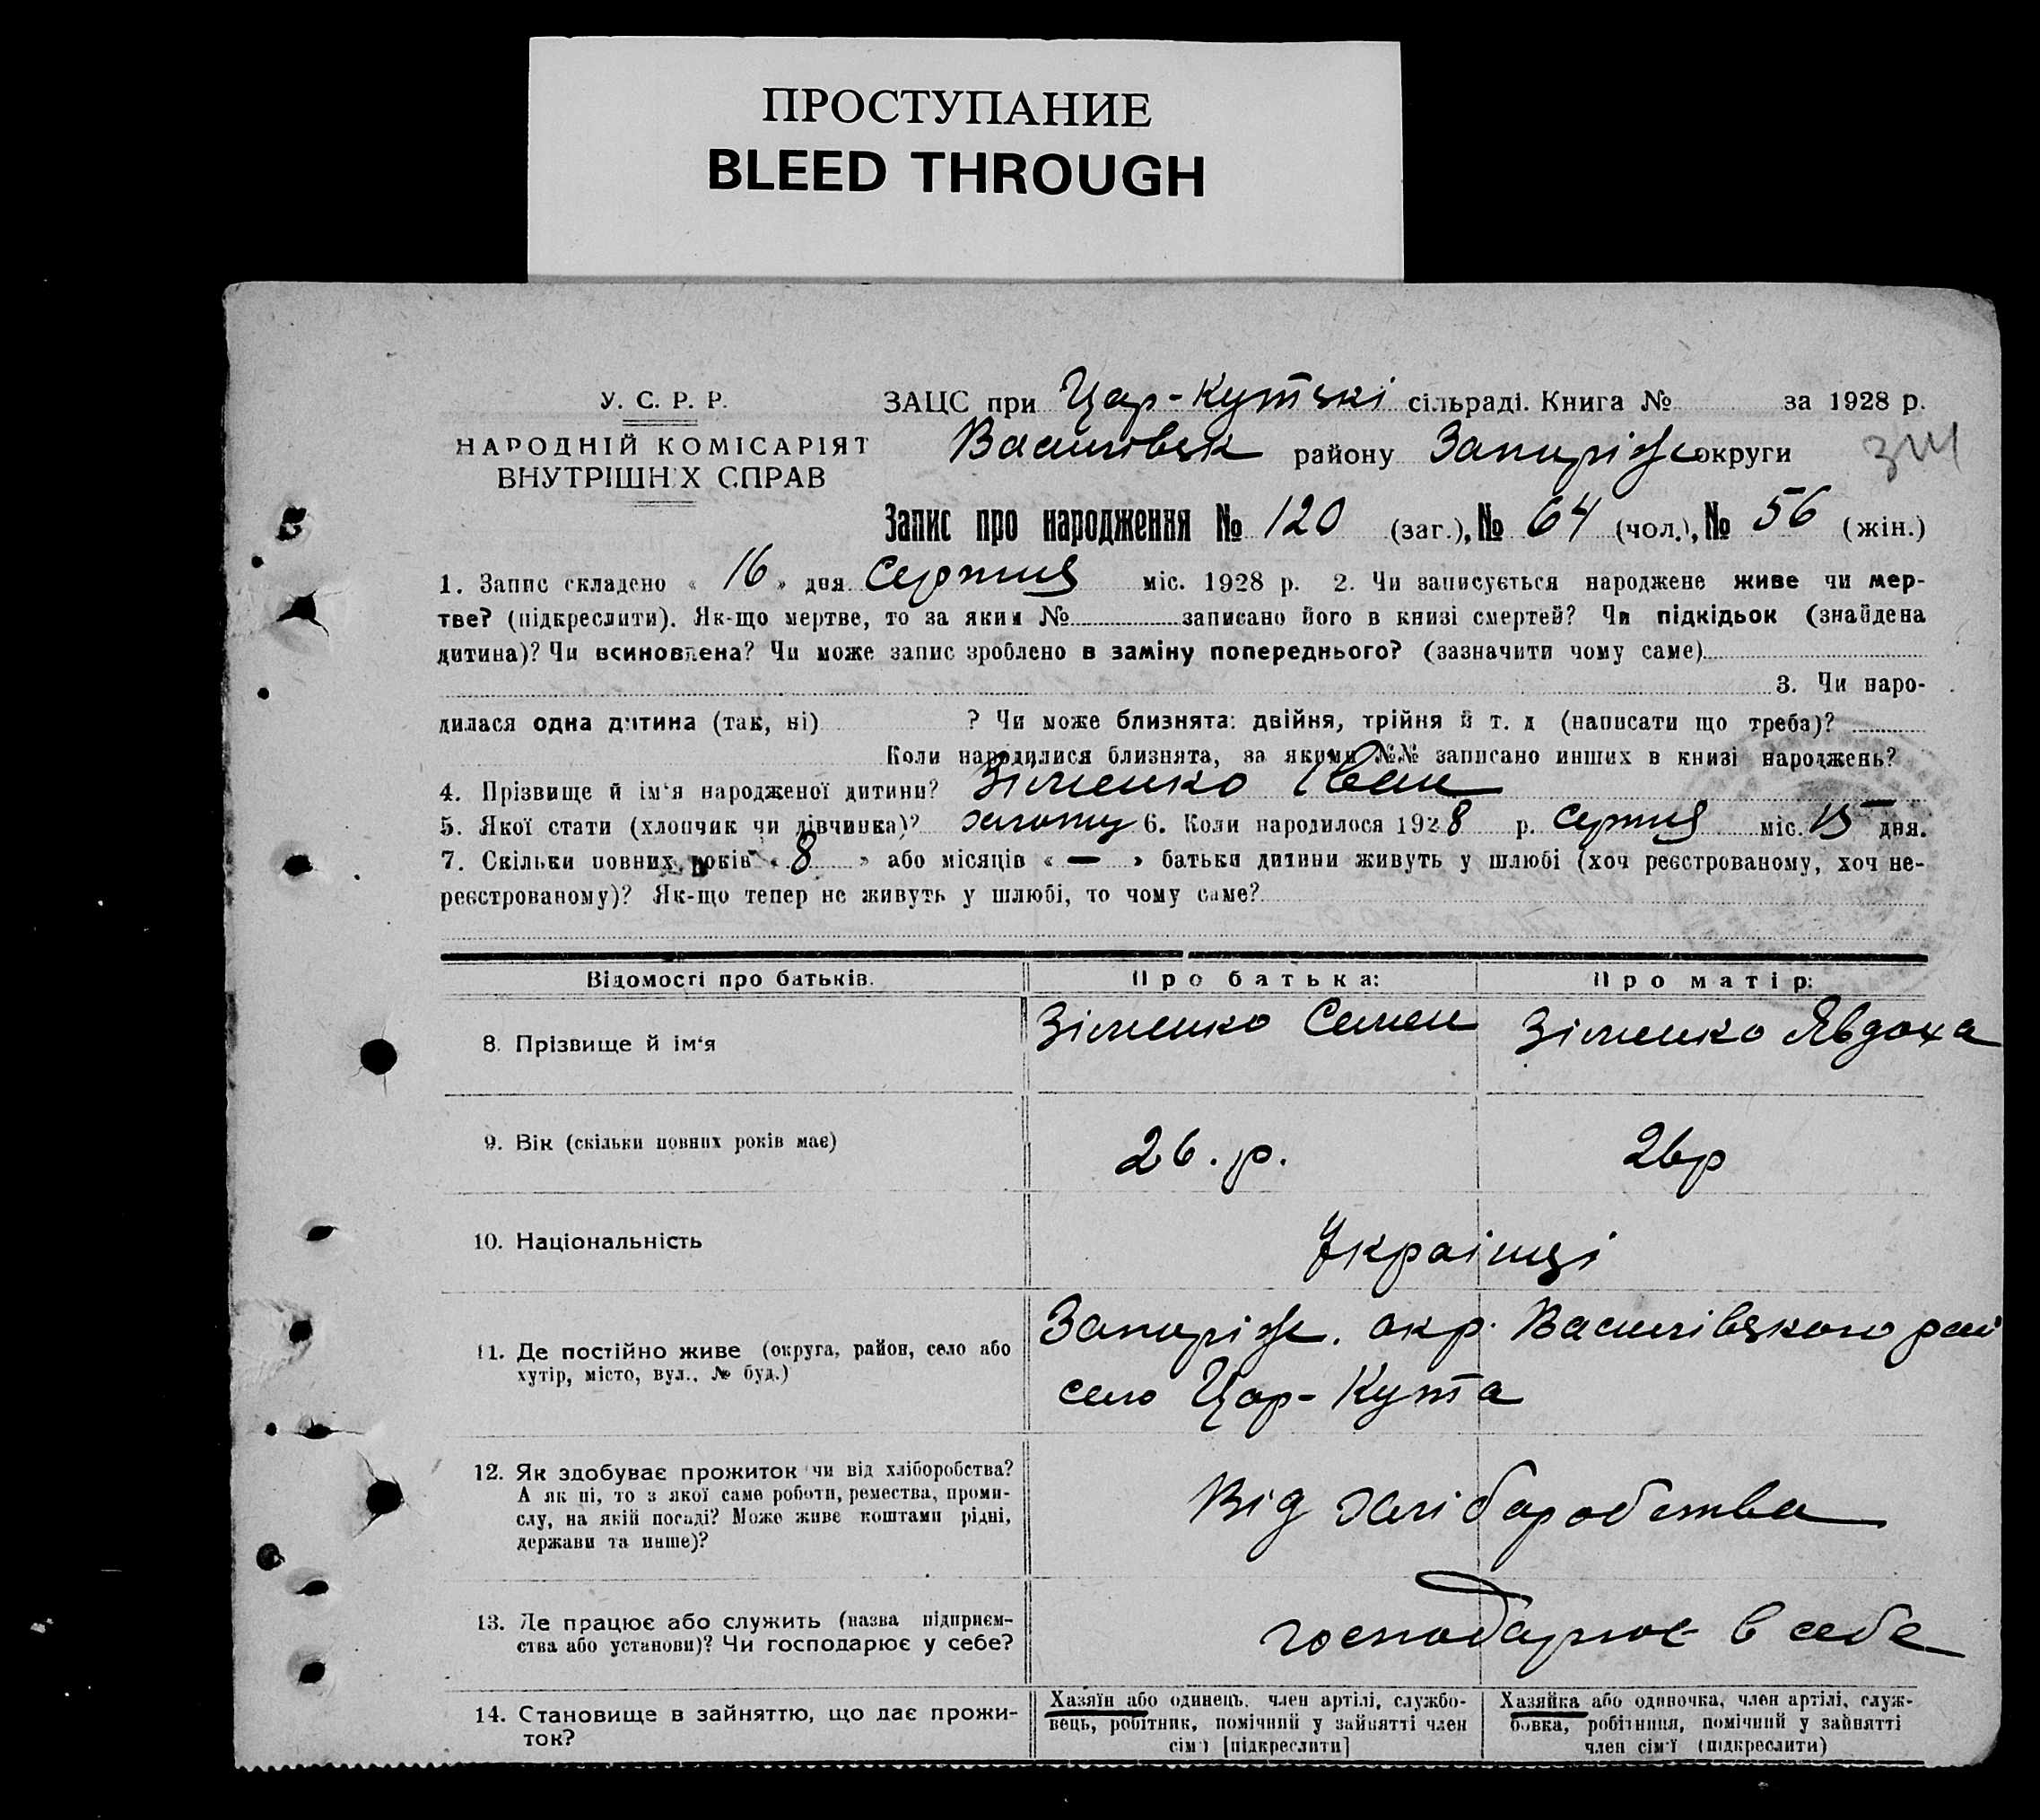 ПРОСТУПАНИЕ
BLEED THROUGH
У. С. Р. Р.
НАРОДНІЙ КОМІСАРІЯТ
ВНУТРІШНІХ СПРАВ
ЗАЦС при Цар-Кутські сільраді. Книга № за 1928 р.
Василівськ району Запоріж округи
Запис про народження № 120 (заг.), № 64 (чол.), № 56 (жін.)
1. Запис складено « 16 » дня Серпня міс. 1928 р. 2. Чи записується народжене живе чи мер-
тве? (підкреслити). Як-що мертве, то за яким № записано його в книзі смертей? Чи підкідьок (знайдена
дитина)? Чи всиновлена? Чи може запис зроблено в заміну попереднього? (зазначити чому саме)
3. Чи наро-
дилася одна дитина (так, ні) ? Чи може близнята: двійня, трійня й т. д (написати що треба)?
Коли народилися близнята, за якими №№ записано инших в книзі народжень?
4. Прізвище й ім'я народженої дитини? Зіменко Іван
5. Якої стати (хлопчик чи дівчинка)? 6. Коли народилося 1928 р. Серпня міс. 15 дня.
7. Скільки повних років « 8 » або місяців « — » батьки дитини живуть у шлюбі (хоч реєстрованому, хоч не-
реєстрованому)? Як-що тепер не живуть у шлюбі, то чому саме?
Відомості про батьків. Про батька: Про матір:
8. Прізвище й ім'я Зіменко Семен Зіменко Явдоха
9. Вік (скільки повних років має) 26. р. 26р
10. Національність Українці
11. Де постійно живе (округа, район, село або
хутір, місто, вул., № буд.)
Запоріж. окр. Василівського рай
село Цар-Кута
12. Як здобуває прожиток чи від хліборобства?
А як ні, то з якої саме роботи, ремества, проми-
слу, на якій посаді? Може живе коштами рідні,
держави та инше)?
Від хлібаробства
13. Де працює або служить (назва підприєм-
ства або установи)? Чи господарює у себе?
господарює в себе
14. Становище в зайняттю, що дає прожи-
ток?
Хазяїн або одинець, член артілі, службо-
вець, робітник, помічний у зайнятті член
сім'ї [підкреслити]
Хазяйка або одиночка, член артілі, служ-
бовка, робітниця, помічний у зайнятті
член сім'ї (підкреслити)